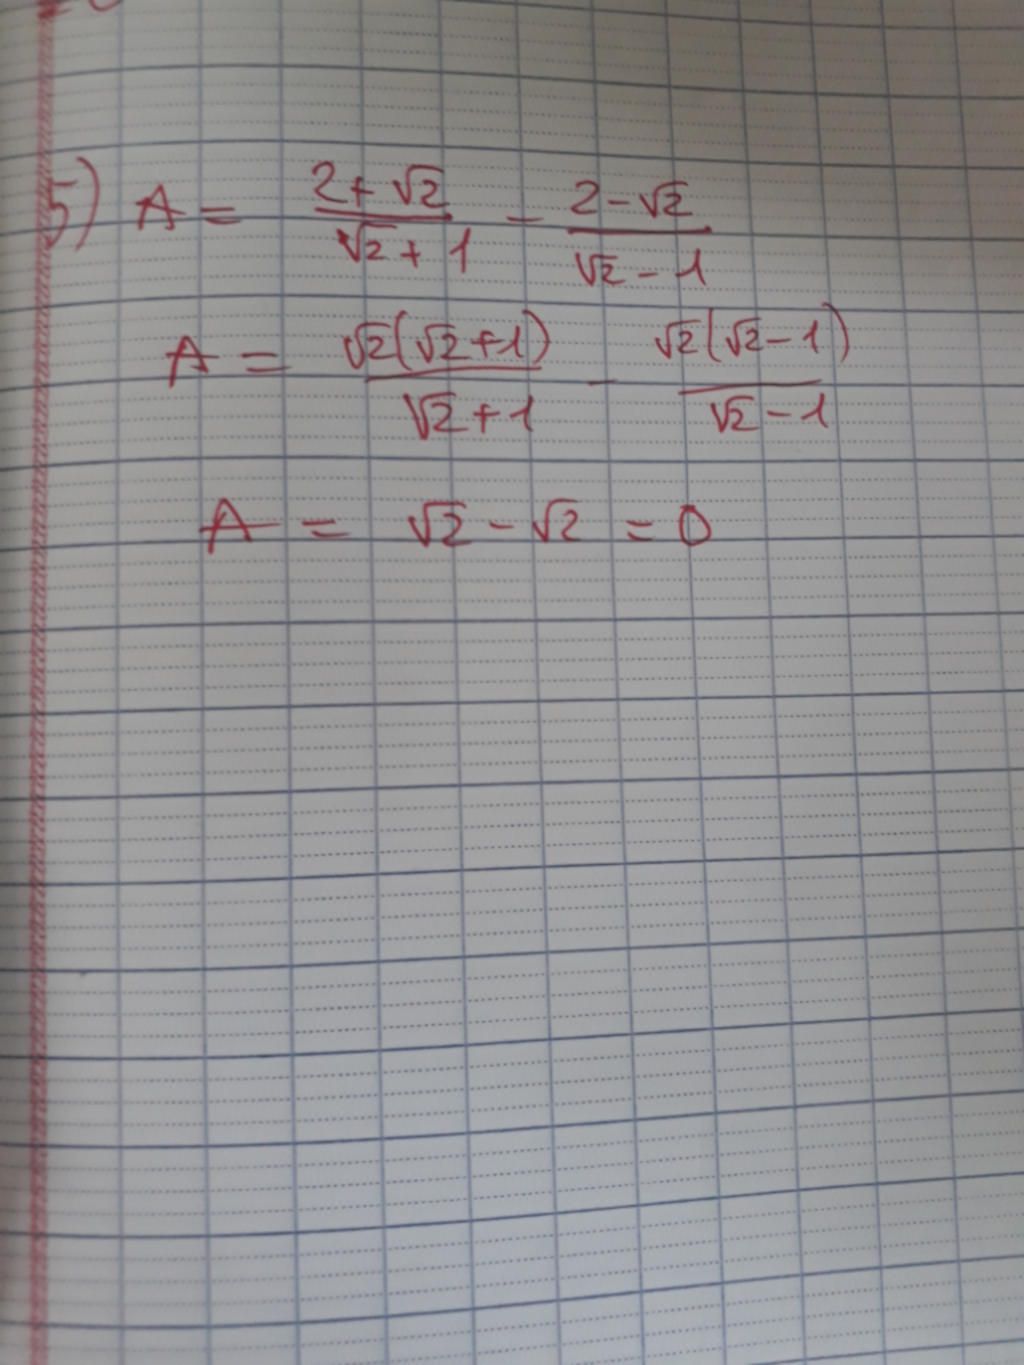 5) A = (2+√2)/(√2+1) - (2-√2)/(√2-1)
A = √2(√2+1)/(√2+1) - √2(√2-1)/(√2-1)
A = √2-√2 = 0